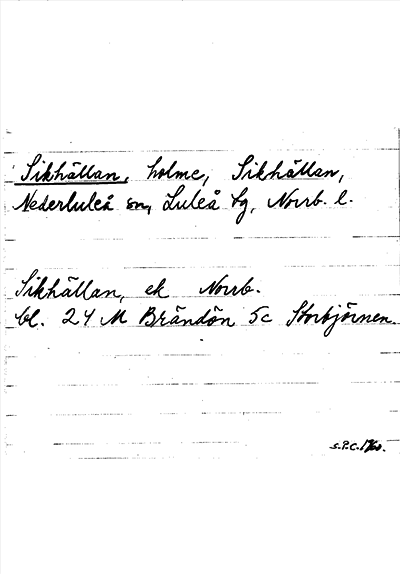 Sikhällan, holme, Sikhällan,
Nederluleå sn, Luleå tg, Norrb. l.
Sikhällan, ek Norrb.
bl. 24 M Brändön 5c Storbjörnen.
S.P.C.